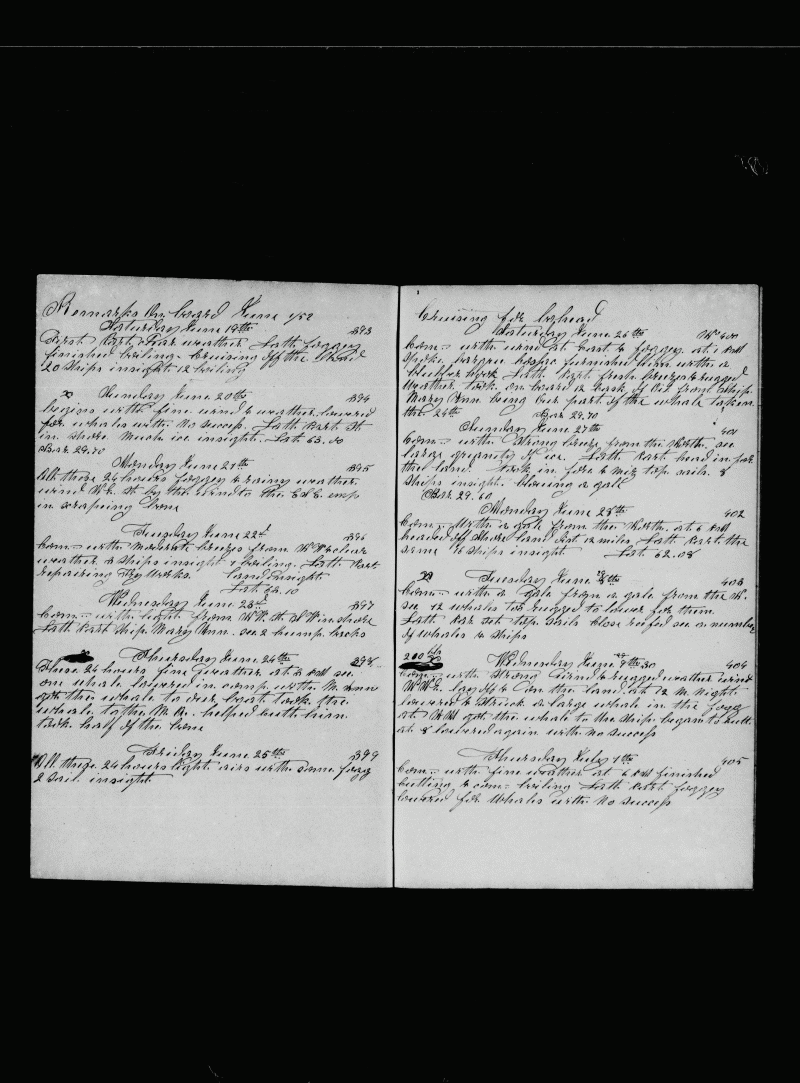 Remarks On board June 1/52
Saturday June 19th 393
First Part Clear weather Lath foggey
finished boiling Cruising off the Land
20 Ships insight 12 boiling
Sunday June 20th 394
begins with fine wind & weather lowered
for whales with No Success Lath Part St
in shore Much ice insight Lat 63.00
Bar 29.70
Monday June 21st 395
All these 24 hours foggey & rainy weather
wind N.E. St by the wind to the E & E emp
in scraping bone
Tuesday June 22d 396
Com- with Moderate breeze from clear
weather ships insight boiling Lath Part
repairing try works land insight
Lat 63.10
Wednesday June 23d 397
Com- with light from in shore
Lath Part Ship Mary Ann see 2 hump backs
Thursday June 24th 398
These 24 hours fine weather at PM see
one whale lowered in comp with the M Ann
got the whale to our boat took the
whale to the M A helped cut him
took half of the bone
Friday June 25th 399
All these 24 hours light airs with some fogg
2 Sail insight
Cruising for bohead
Saturday June 26th 400
Com- with wind at East & foggey at 1 PM
Spoke furnished him with a
Lath Part fresh breeze & rugged
Weather took on board 12 Cask of Oil from Ship
Mary Ann being our part of the whale taken
the 24th Bar 29.70
Sunday June 27th 401
Com- with Strong breeze from the North see
large quanity of ice Lath Part head in for
the land took in fore & Miz top sails 8
Ships insight blowing a gale
Bar 29.60
Monday June 28th 402
Com- With a gale from the North at 6 PM
headed off Shore land dist 12 miles Lath Part the
same 6 Ships insight Lat 62.08
Tuesday June 29th 403
Com- with a gale from a gale from the N.
see 12 whales to rugged to lower for them
Lath Par set top Sails close reefed see a number
of whales & Ships
200 bls Wednesday June 30 404
Com- with Strong wind & rugged weather wind
lay off & On the land at 12 M Night
lowered & Struck a large whale in the fogg
at got the whale to the Ship began to cutt
at 8 lowered again with no success
Thursday July 1th 405
Com- with fine weather at 6 PM finished
cutting & com- boiling Lath Part foggey
lowered for Whales with No Success